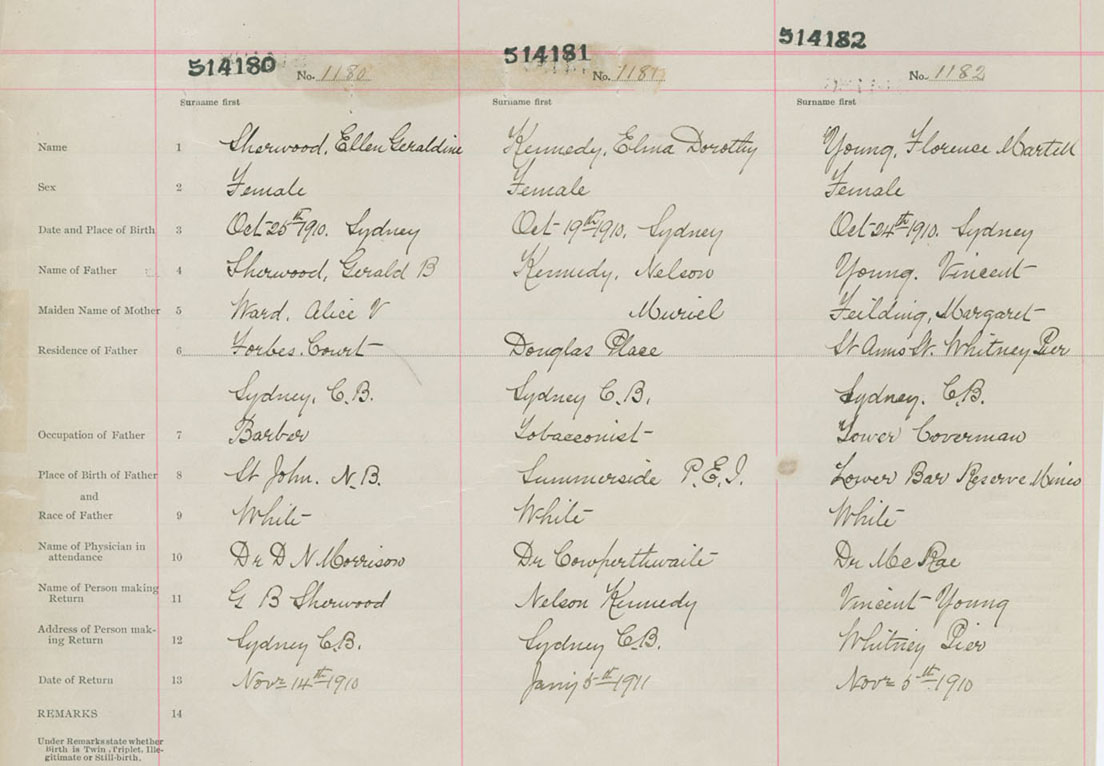 514180 No. 1180 514181 No. 1181 514182 No. 1182
Surname first Surname first Surname first
Name 1 Sherwood, Ellen Geraldine Kennedy, Elma Dorothy Young, Florence Martell
Sex 2 Female Female Female
Date and Place of Birth 3 Oct 25th 1910. Sydney Oct 19th 1910, Sydney Oct 24th 1910, Sydney
Name of Father 4 Sherwood, Gerald B Kennedy, Nelson Young. Vincent
Maiden Name of Mother 5 Ward, Alice V Muriel Feilding, Margaret
Residence of Father 6 Forbes Court Douglas Place St Anns St. Whitney Pier
Sydney, C.B. Sydney C.B. Sydney. C.B.
Occupation of Father 7 Barber Tobacconist Tower Coverman
Place of Birth of Father 8 St John. N.B. Summerside P.E.I. Lower Bar Reserve Mines
and
Race of Father 9 White White White
Name of Physician in
attendance 10 Dr D N Morrison Dr Cowperthwaite Dr Mc Rae
Name of Person making
Return 11 G B Sherwood Nelson Kennedy Vincent Young
Address of Person mak-
ing Return 12 Sydney C.B. Sydney C.B. Whitney Pier
Date of Return 13 Novr 14th 1910 Jany 5th 1911 Novr 5th 1910
REMARKS 14
Under Remarks state whether
Birth is Twin, Triplet, Ille-
gitimate or Still-birth.